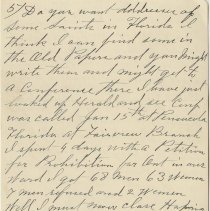 5/ Do you want Addresses of
Some Saints in Florida I
think I can find some in
the Old Papers and you might
write them and might get to
a Conference there I have just
looked up Herald and see Conf
was called Jan 15th at Pensacola
Florida at Fairview Branch
I spent 4 days with a Petition
for Prohibition for Ont in our
Ward I got 68 men 63 Women
7 men refused and 2 Women
Well I must now close Hoping